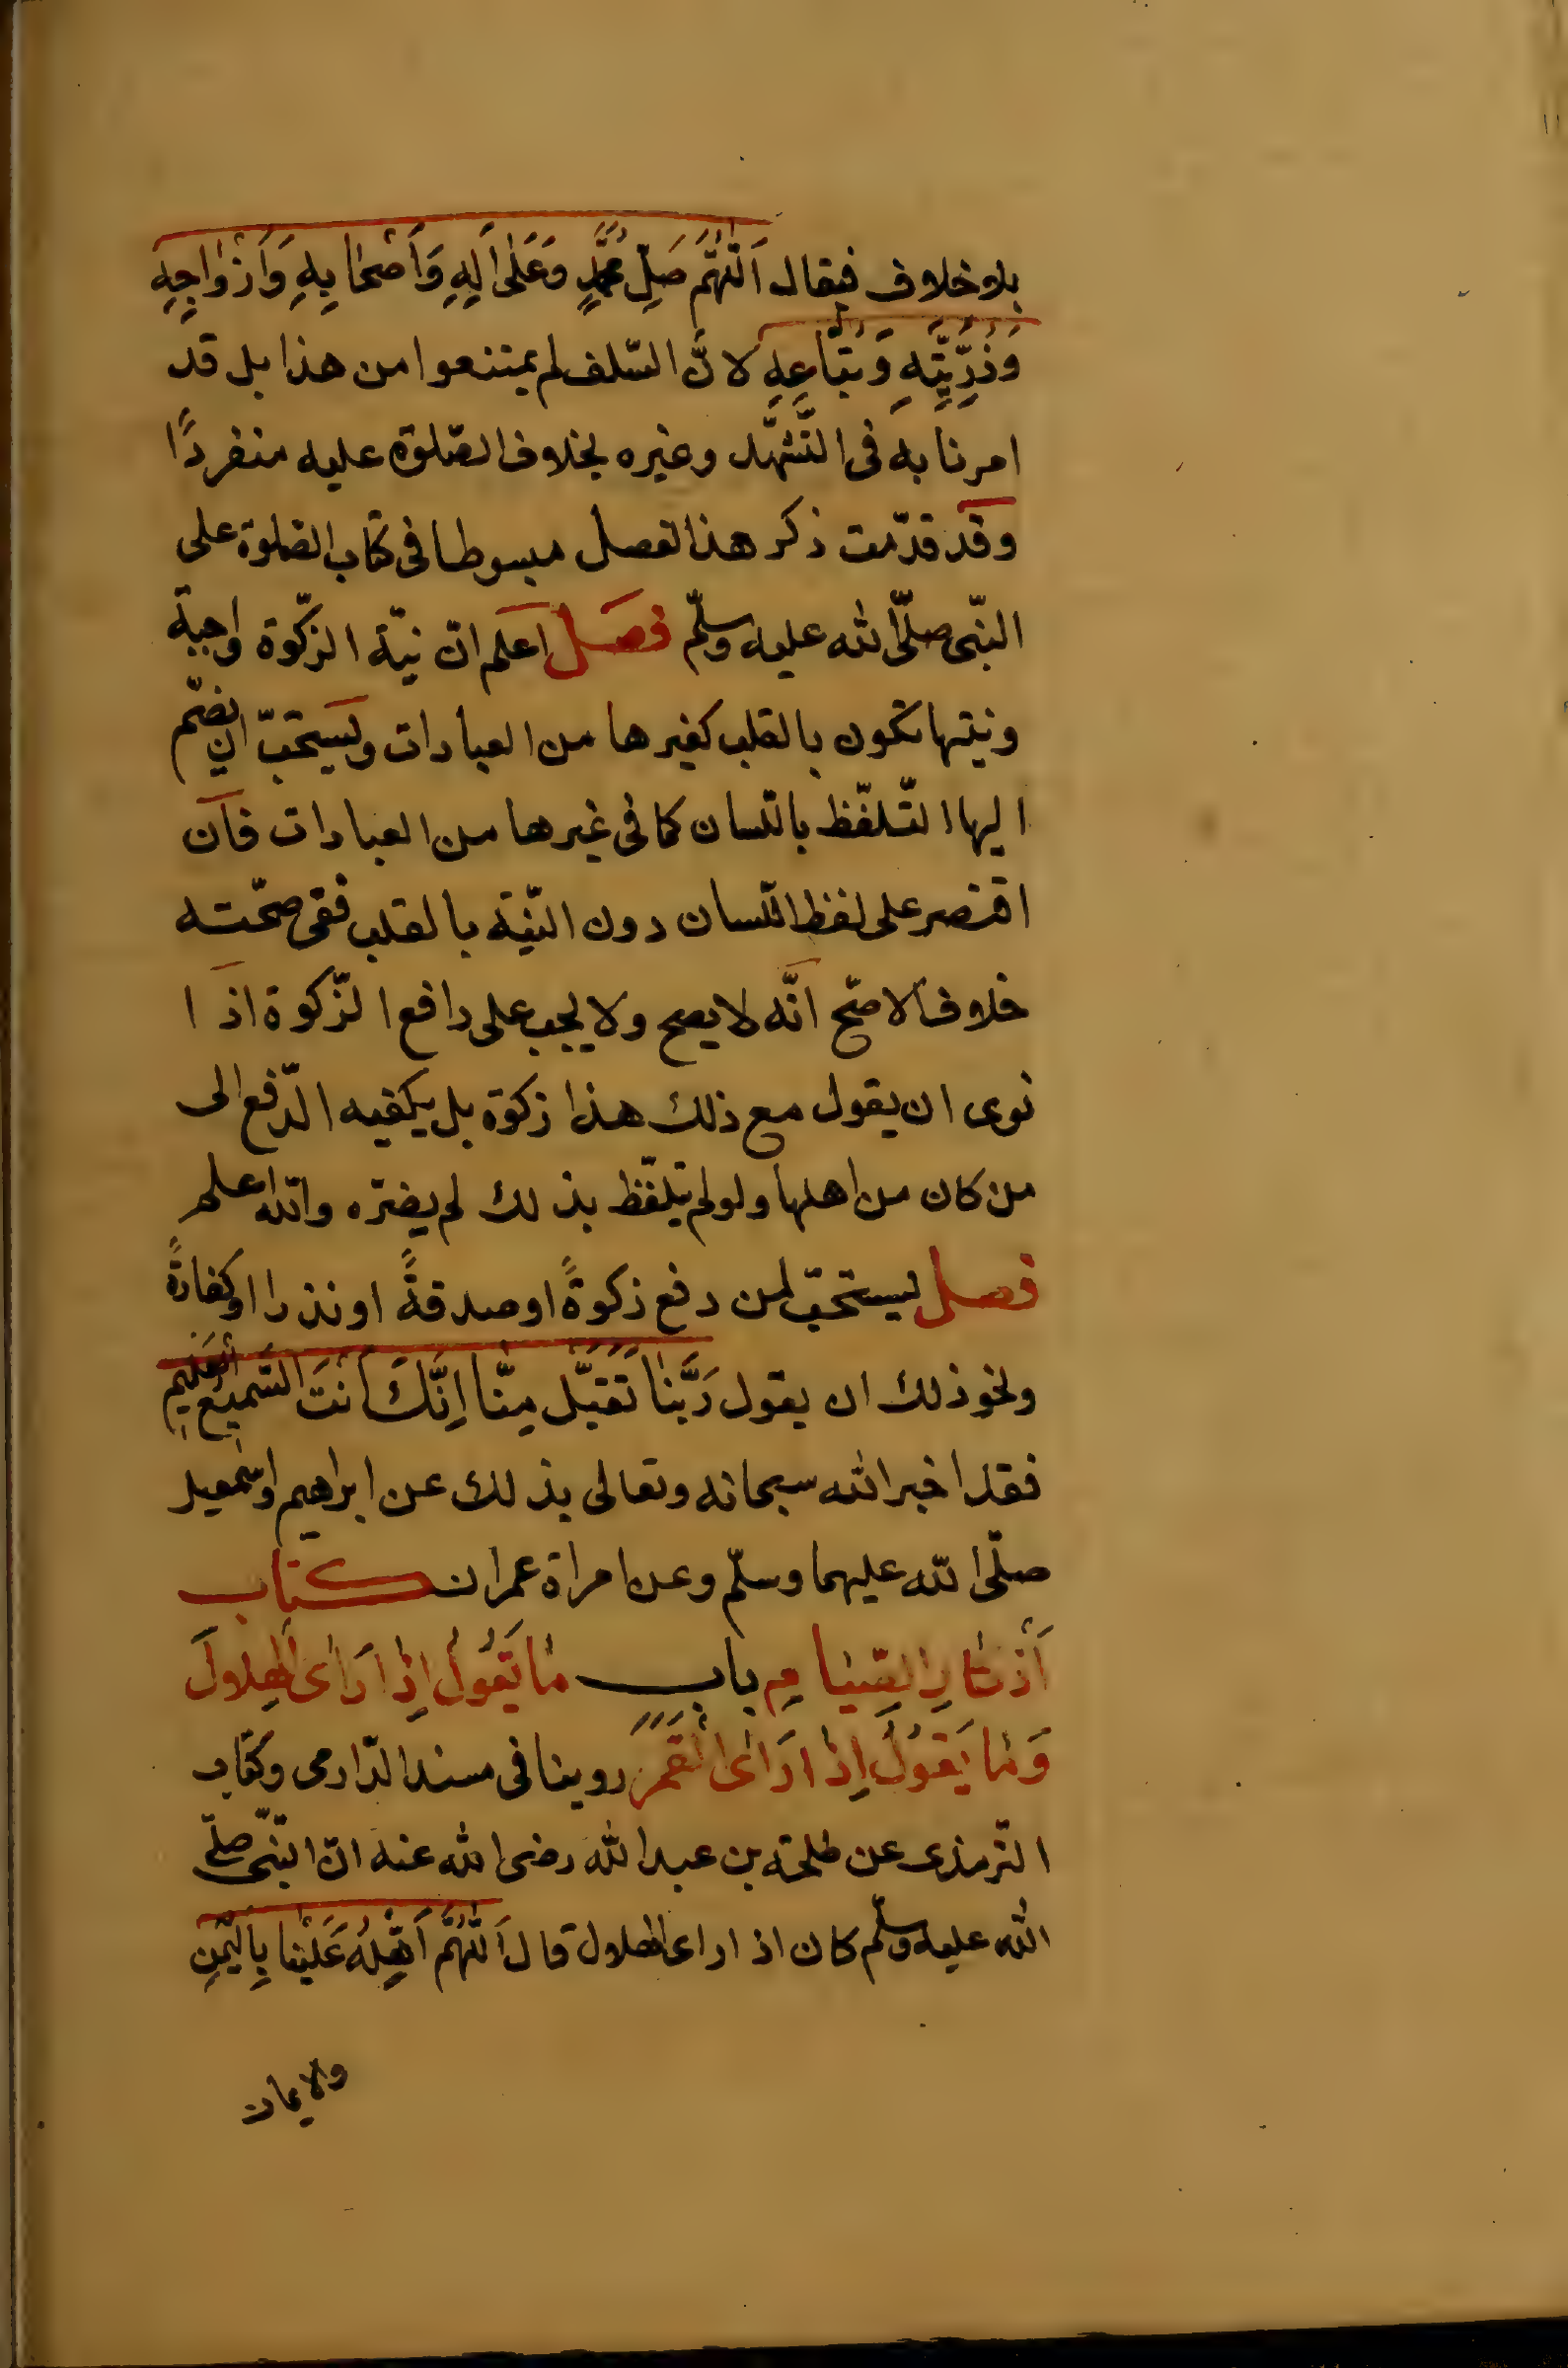 بلا خلاف فيقال اَللّٰهُمَّ صَلِّ مُحَمَّدٍ وَعَلٰى اٰلِهِ وَاَصْحٰابِهِ وَاَزْوٰاجِهِ
وَذُرِّيَّتِهِ وَتُبَّاعِهِ لانّ السّلف لم يمتنعوا من هذا بل قد
امرنا به فى التّشهّد وغيره بخلاف الصّلوة عليه منفردًا
وقد قدّمت ذكر هذا لفصل مبسوطا فى كتاب الصلوة على
النّبى صلّى الله عليه وسلّم فصل اعلم انّ نيّة الزّكوة واجبة
ونيّتها تكون بالقلب كغيرها من العبادات ويستحبّ ان يضمّ
اليها التّلفّظ باللّسان كما فى غيرها من العبادات فان
اقتصر على لفظ اللّسان دون النّيّة بالقلب ففى صحّته
خلاف الاصّح انّه لا يصح ولا يجب على دافع الزّكوة اذا
نوى ان يقول مع ذلك هذا زكوة بل يكفيه الدّفع الى
من كان من اهلها ولو لم يتلفّظ بذلك لم يضرّه والله اعلم
فصل يستحبّ لمن دفع زكوةً او صدقةً او نذرا او كفارةً
ونحو ذلك ان يقول رَبَّنٰا تَقَبَّل مِنّٰا اِنَّكَ اَنْتَ السَّمِيعُ الْعَلِيمِ
فقد اخبر الله سبحانه وتعالى بذلك عن ابراهيم واسمعيل
صلّى الله عليهما وسلّم وعن امراة عمران كتاب
أَذْكٰارِ الصِّيٰامِ باب مٰا يَقُولُ إِذٰا رَاٰى الْهِلٰالَ
وَمٰا يَقُولُ اِذٰا رَاٰى الْقَمَرَ روينا فى مسند الدّارمى وكتاب
التّرمذى عن طلحة بن عبد الله رضى الله عنه انّ النّبى صلّى
الله عليه وسلّم كان اذا راى الهلال قال اَللّٰهُمَّ اَهِّلْهُ عَلَيْنٰا بِالْيُمْنِ
ولايمان